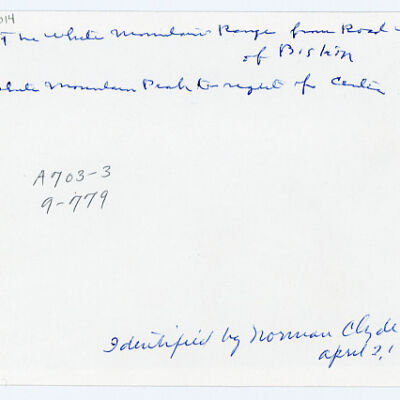 014
The White Mountain Range from Road
of Bishop
White Mountain Peak to right of Center
A703-3
9-779
Identified by Norman Clyde
April 2,